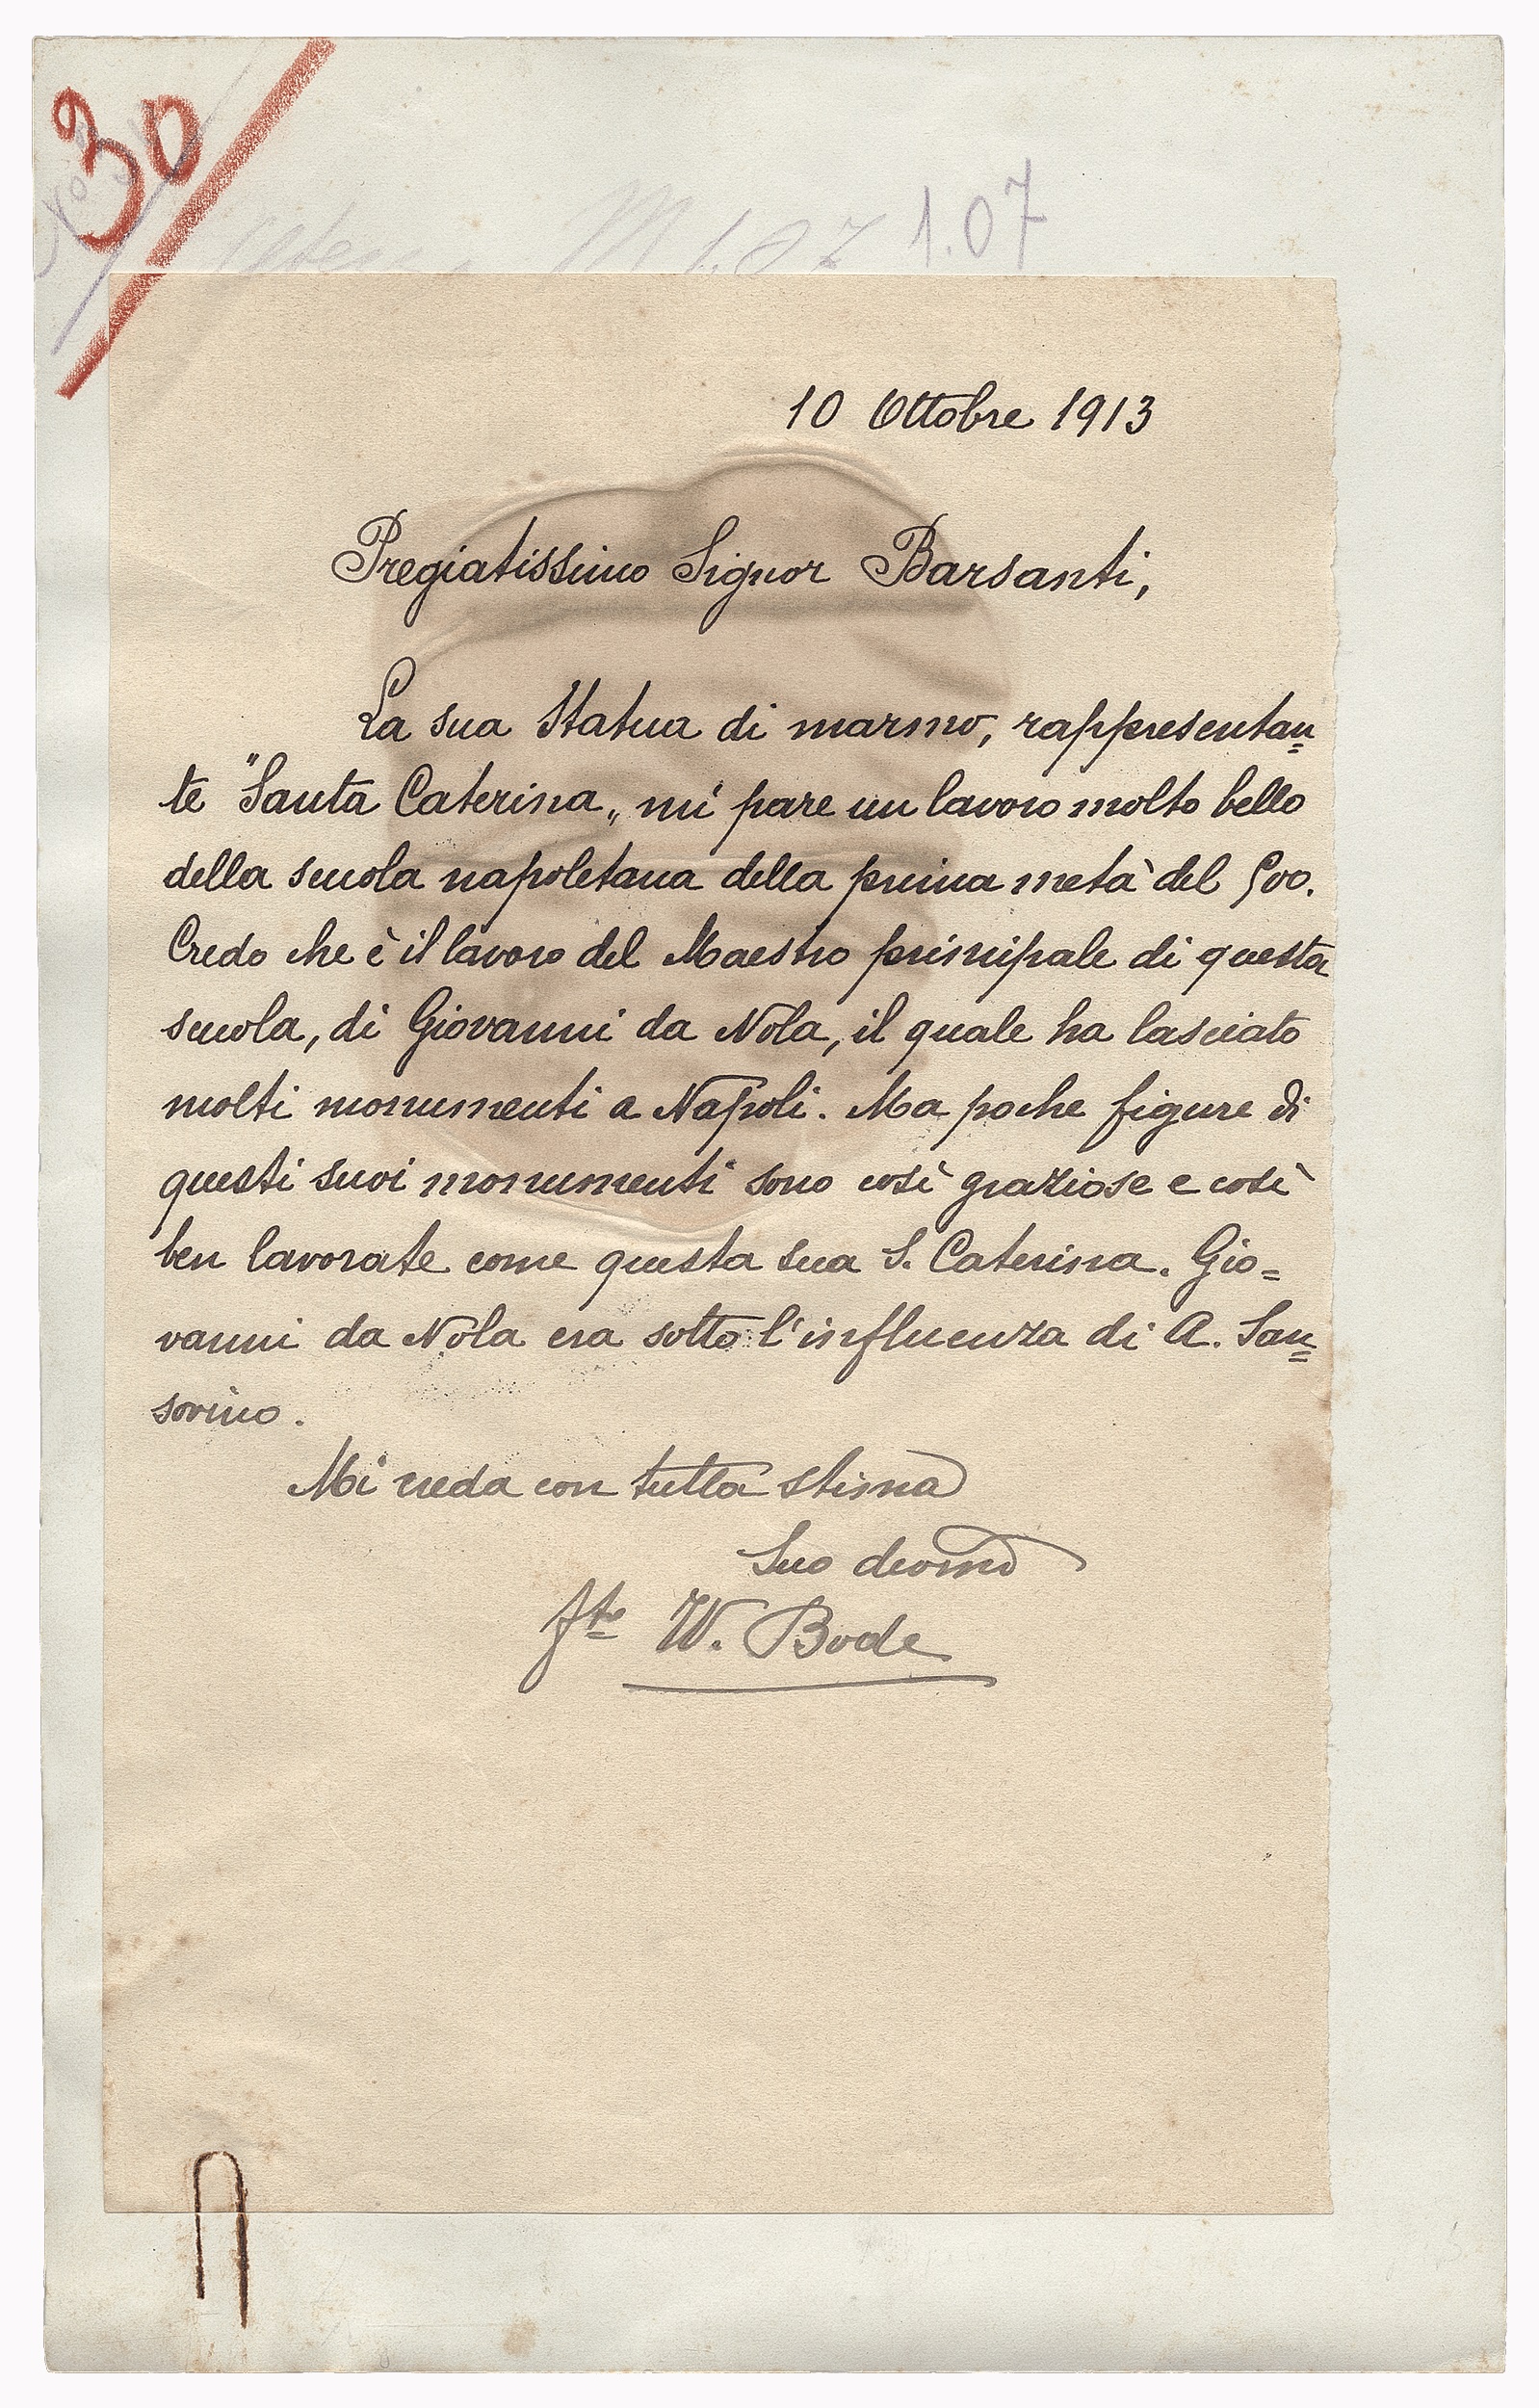 30
1.07
10 Ottobre 1913
Pregiatissimo Signor Barsanti,
La sua Statua di marmo, rappresentan=
te "Santa Caterina„ mi pare un lavoro molto bello
della scuola napoletana della prima metà del 500.
Credo che è il lavoro del Maestro principale di questa
scuola, di Giovanni da Nola, il quale ha lasciato
molti monumenti a Napoli. Ma poche figure di
questi suoi monumenti sono così graziose e così
ben lavorate come questa sua S. Caterina. Gio=
vanni da Nola era sotto l'influenza di A. San=
sovino.
Mi creda con tutta stima
Suo devomo
fto W. Bode